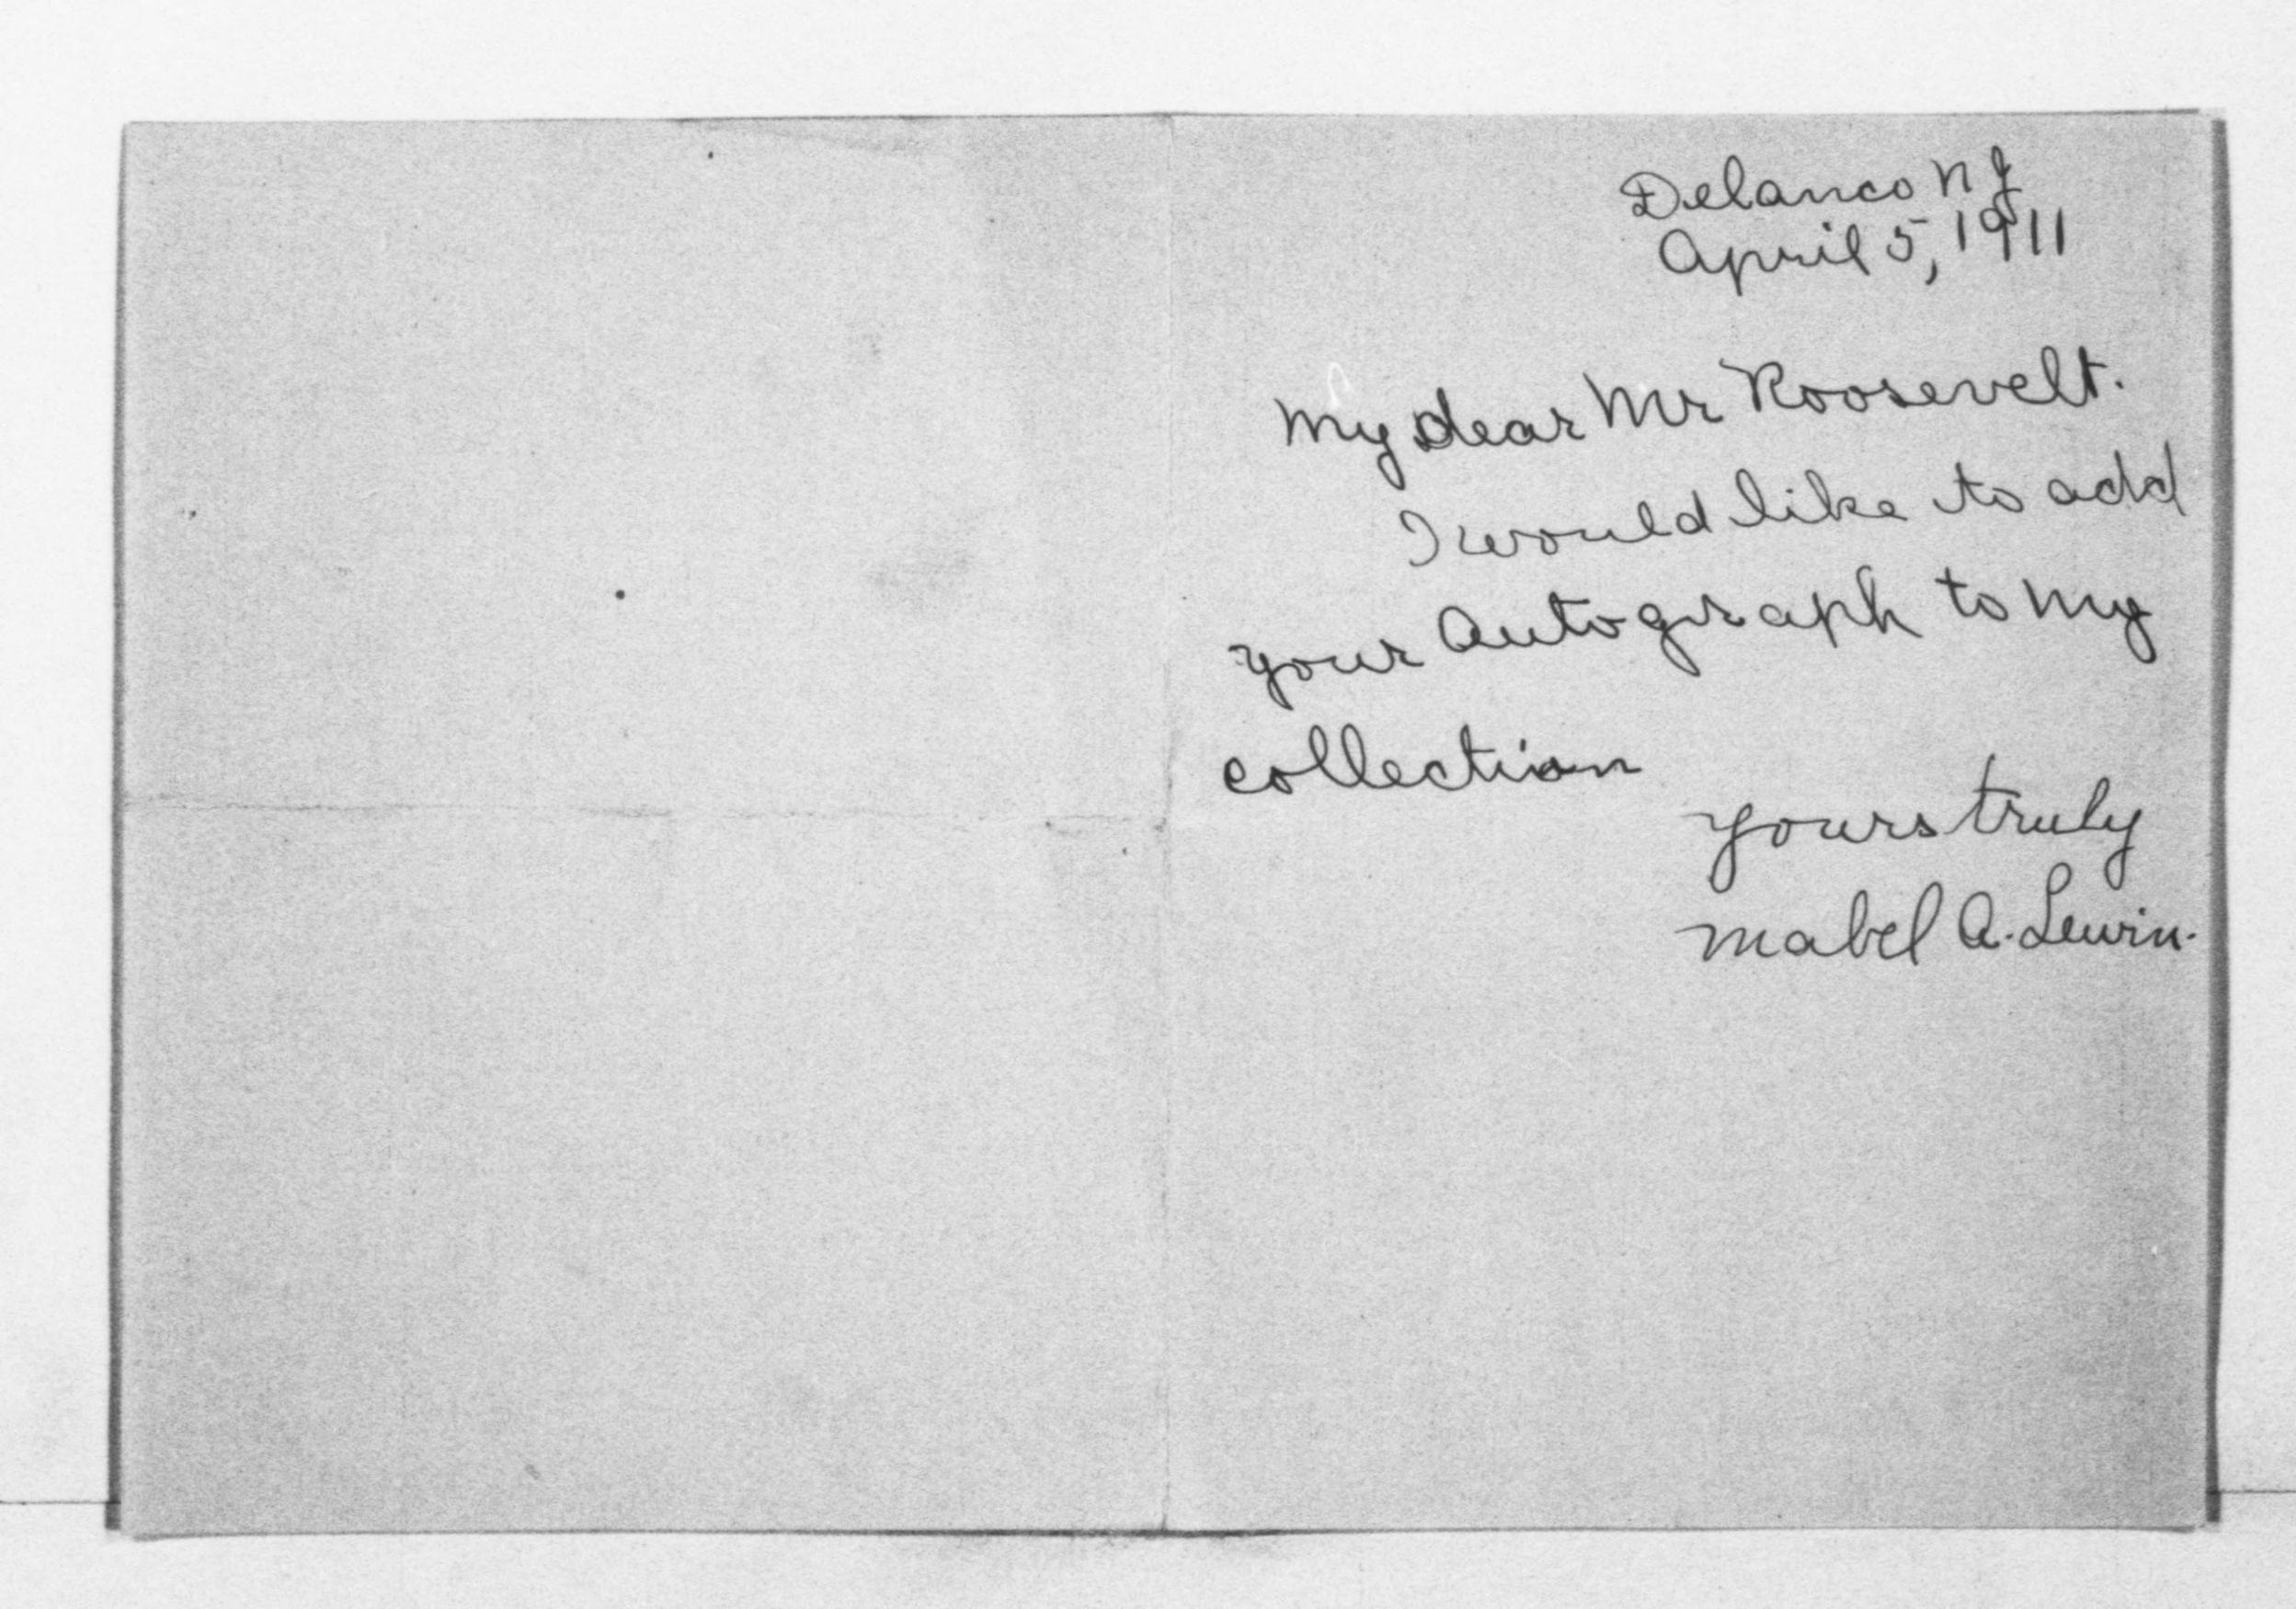 Delanco N J
April 5, 1911
My dear Mr Roosevelt.
I would like to add
your Autograph to my
collection
Yours truly
Mabel A. Lewin.